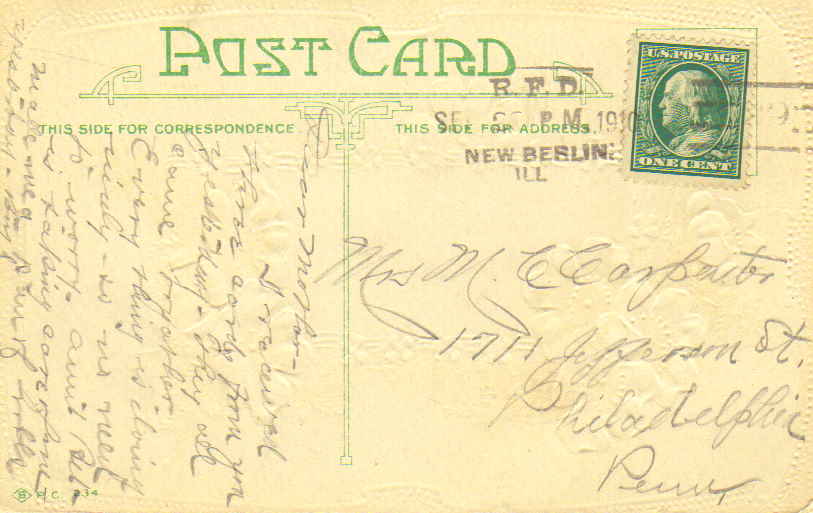 POST CARD
THIS SIDE FOR CORRESPONDENCE
THIS SIDE FOR ADDRESS
R.F.D.
SEP P.M. 1910
NEW BERLIN
ILL
U.S. POSTAGE
ONE CENT
Dear Mother-
I received
three cards from you
yesterday - they all
came together
Every thing is doing
nicely - so no need
to worry. Aunt
is taking care of me
made me a
yesterday - big
Mrs M. E Carpenter
1711 Jefferson St.
Philadelphia
Penn,
P.C. 234